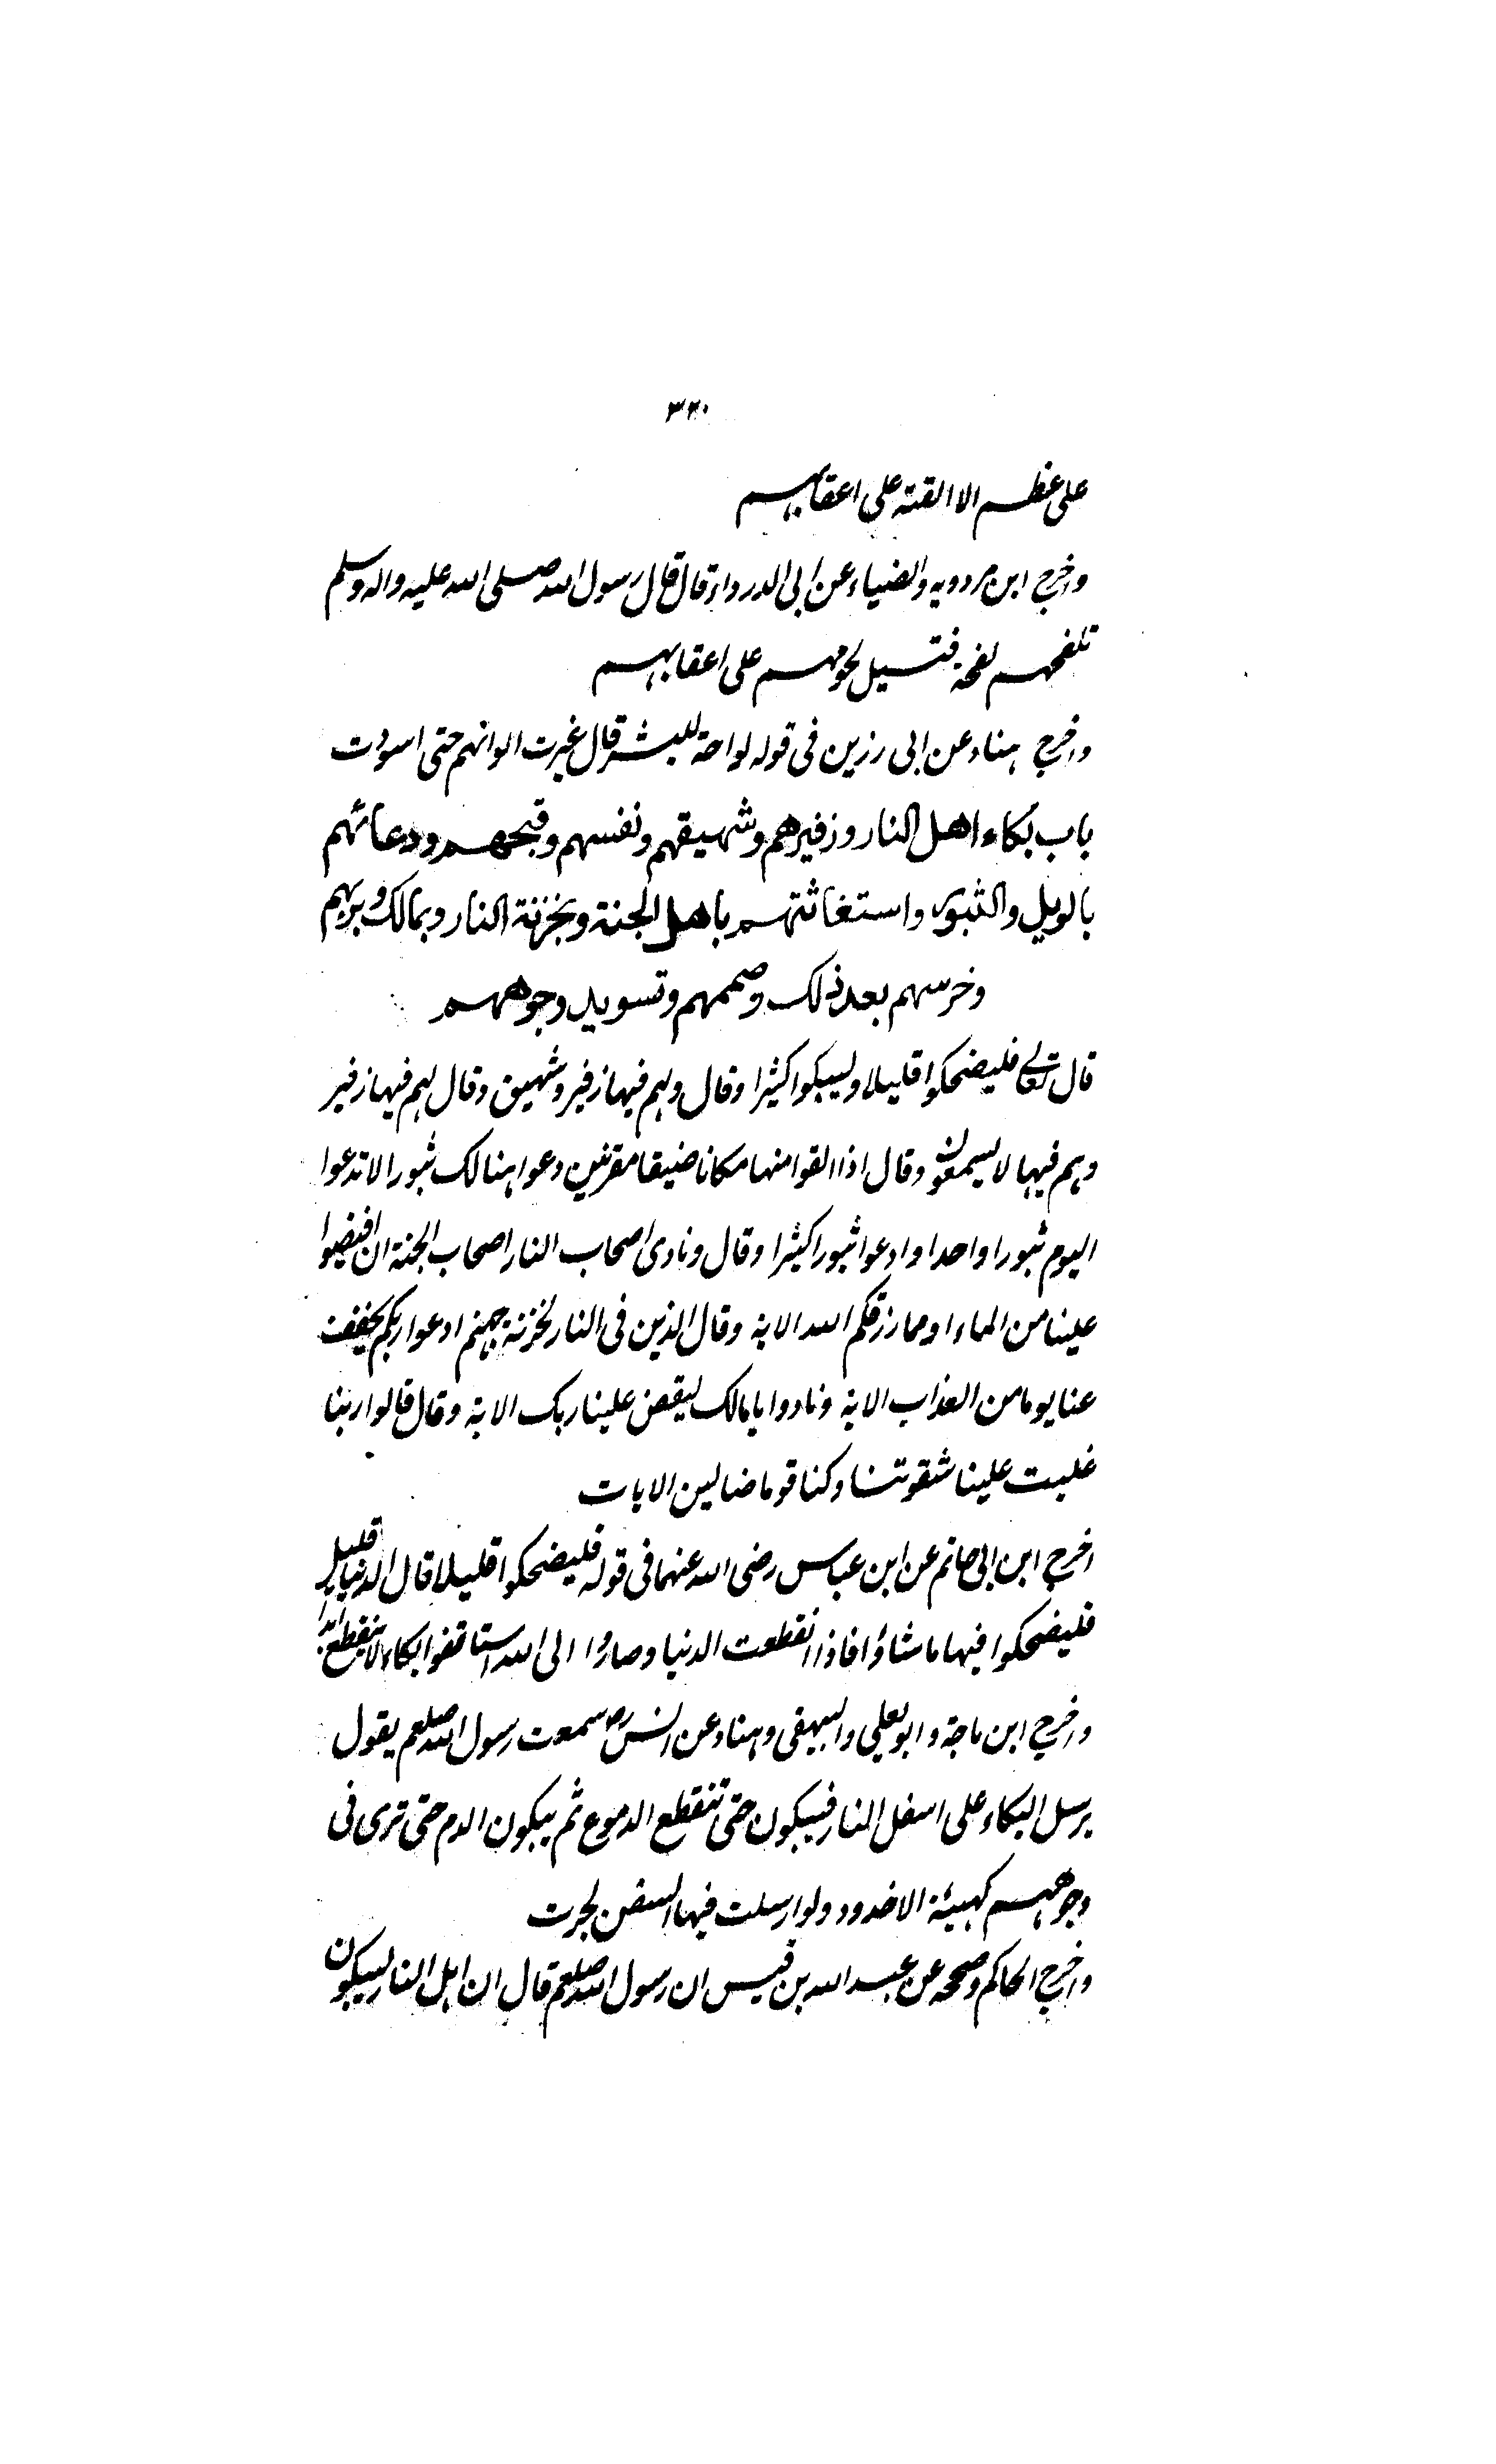 ٣٢٠
على عظم الا القته على اعقابهم
واخرج ابن مردويه والضياء عن ابى الدرداء قال قال رسول الله صلى الله عليه واله وسلم
تلفحهم لفحة فتسيل لحومهم على اعقابهم
واخرج هناد عن ابى رزين فى قوله لواحة للبشر قال غيرت الوانهم حتى اسودت
باب بكاء اهل النار وزفيرهم وشهيقهم ونفسهم وقبحهم ودعائهم
بالويل والثبور واستغاثتهم باهل الجنة وبخزنة النار وبمالك وبربهم
وخرسهم بعد ذلك وصممهم وتسويد وجوههم
قال تعالى فليضحكوا قليلا وليبكوا كثيرا وقال ولهم فيها زفير وشهيق وقال لهم فيها زفير
وهم فيها لا يسمعون وقال اذا القوا منها مكانا ضيقا مقرنين دعوا هنالك ثبورا لا تدعوا
اليوم ثبورا واحدا وادعوا ثبورا كثيرا وقال ونادى اصحاب النار اصحاب الجنة ان افيضوا
علينا من الماء او مما رزقكم الله الاية وقال الذين فى النار لخزنة جهنم ادعوا ربكم يخفف
عنا يوما من العذاب الاية ونادوا يا مالك ليقض علينا ربك الاية وقال قالوا ربنا
غلبت علينا شقوتنا وكنا قوما ضالين الايات
اخرج ابن ابى حاتم عن ابن عباس رضى الله عنهما فى قوله فليضحكوا قليلا قال الدنيا قليل
فليضحكوا فيها ما شاؤا فاذا انقطعت الدنيا وصاروا الى الله استانفوا بكاء لا ينقطع ابدا
واخرج ابن ماجة وابو يعلي والبيهقى وهناد عن انس رض سمعت رسول الله صلعم يقول
يرسل البكاء على اسفل النار فيبكون حتى تنقطع الدموع ثم يبكون الدم حتى ترى فى
وجوههم كهيئة الاخدود ولو ارسلت فيها السفن لجرت
واخرج الحاكم وصححه عن عبد الله بن قيس ان رسول الله صلعم قال ان اهل النار ليبكون